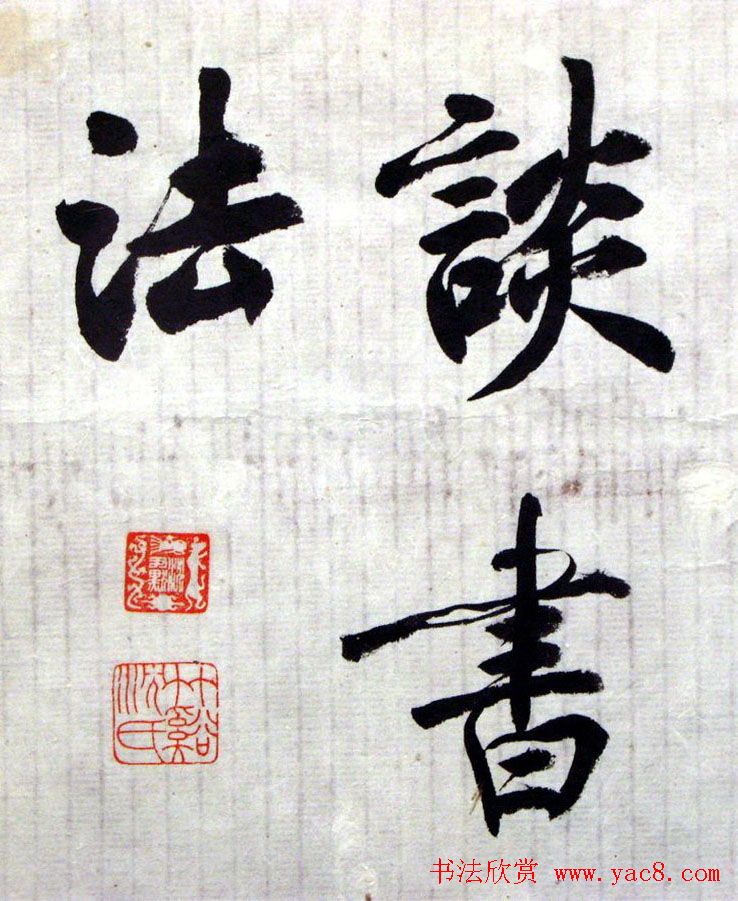 談書
法
竹谿沈氏
书法欣赏 www.yac8.com